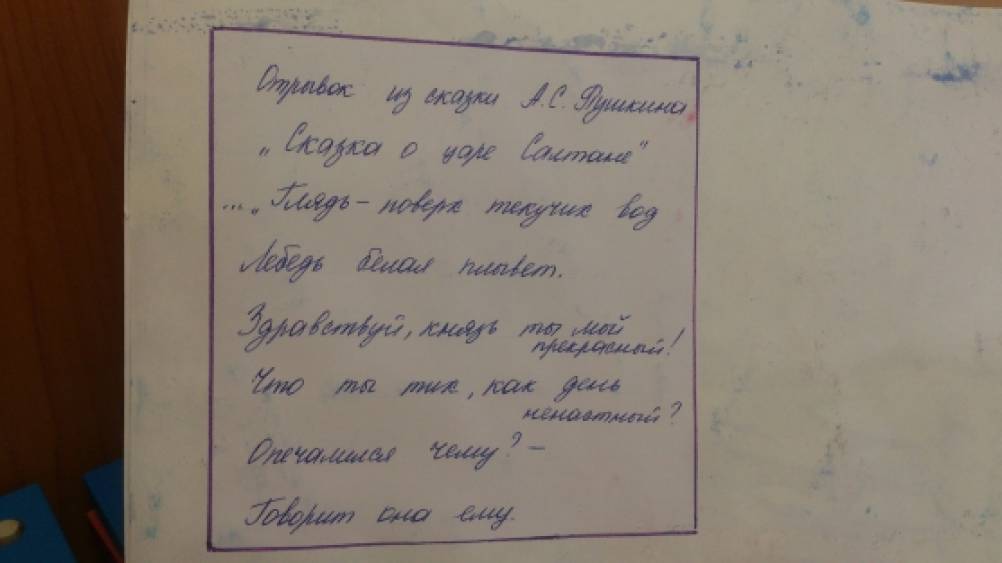 Отрывок из сказки А.С. Пушкина
„Сказка о царе Салтане"
... „Глядь – поверх текучих вод
Лебедь белая плывет.
Здравствуй, князь ты мой
прекрасный!
Что ты тих, как день
ненастный?
Опечалился чему? –
Говорит она ему.